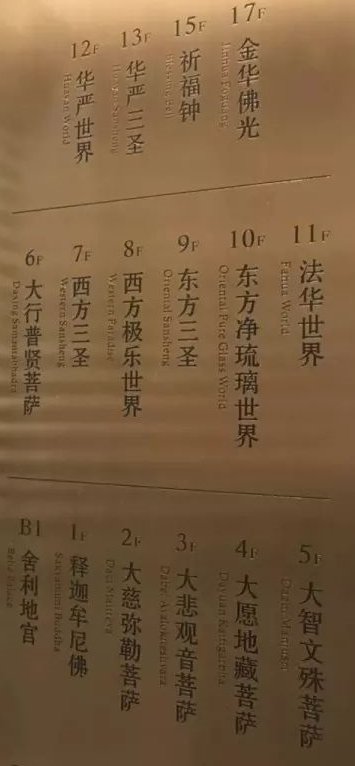 17F 金华佛光
Jinhua Foguang
15F 祈福钟
13F 华严三圣
12F 华严世界
Huayan World
11F 法华世界
Fahua World
10F 东方净琉璃世界
Oriental Pure Glass World
9F 东方三圣
Oriental Sansheng
8F 西方极乐世界
Western Paradise
7F 西方三圣
Western Sansheng
6F 大行普贤菩萨
Daxing Samantabhadra
5F 大智文殊菩萨
4F 大愿地藏菩萨
3F 大悲观音菩萨
Dabei Avalokitesvara
2F 大慈弥勒菩萨
Daci Maitreya
1F 释迦牟尼佛
Sakyamuni Buddha
B1 舍利地宫